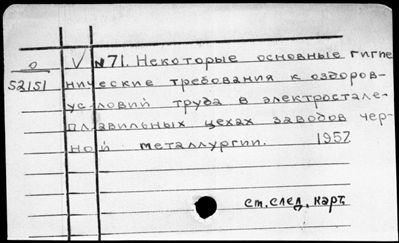 о V №71. Некоторые основные гигие
52151 нические требования к оздоров-
условий труда в электростале-
плавильных цехах заводов чер-
ной металлургии. 1957
см. след. карт.